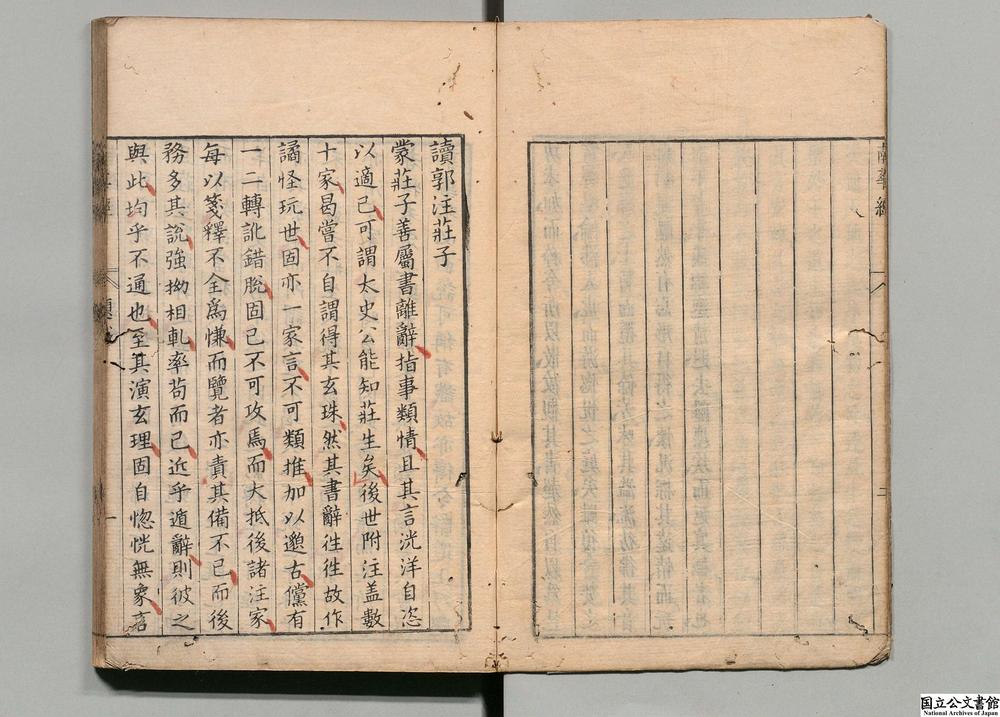 南華經
讀郭注莊子
蒙莊子善屬書離辭指事類情且其言洸洋自恣
以適己可謂太史公能知莊生矣後世附注盖數
十家曷嘗不自謂得其玄珠然其書辭徃徃故作
譎怪玩世固亦一家言不可類推加以邈古儻有
一二轉訛錯脫固已不可攻焉而大抵後諸注家
每以箋釋不全爲慊而覽者亦責其備不已而後
務多其說強拗相軋率苟而已近乎遁辭則彼之
與此均乎不通也至其演玄理固自惚恍無象言
国立公文書館
National Archives of Japan